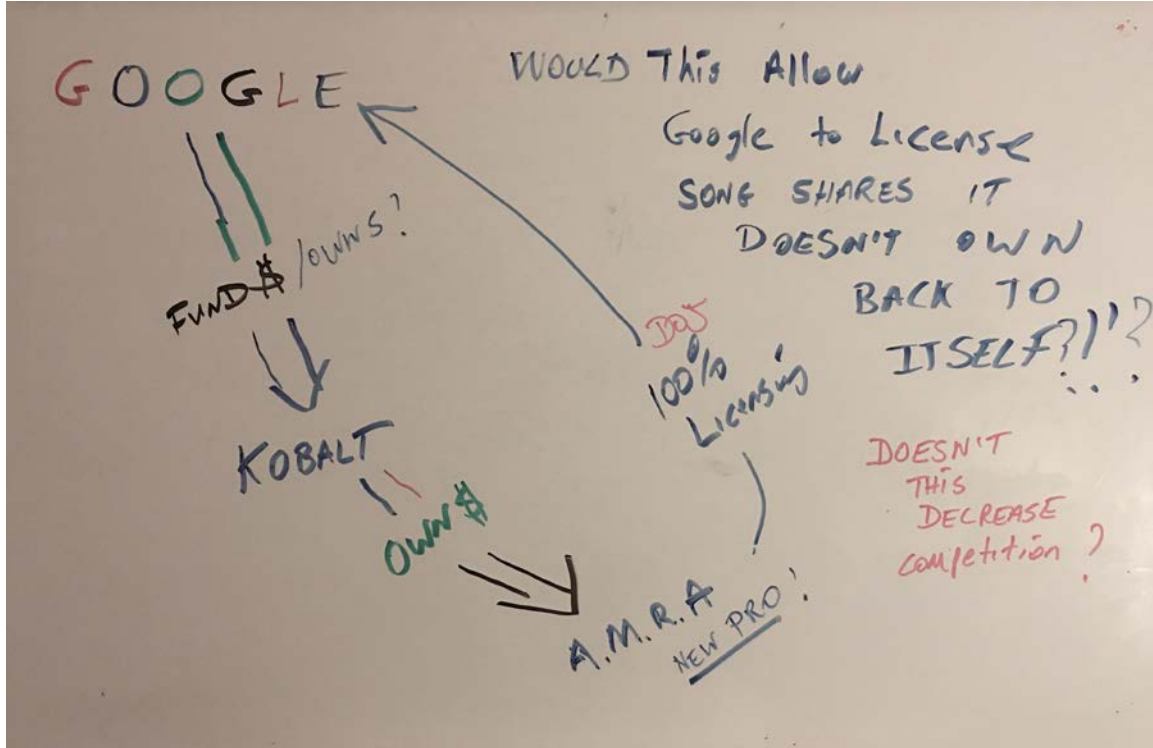 GOOGLE
FUND$/OWNS?
KOBALT
OWN$
A.M.R.A
NEW PRO!
DOJ
100%
Licensing
WOULD This Allow
Google to License
SONG SHARES IT
DOESN'T OWN
BACK TO
ITSELF?!'?
DOESN'T
THIS
DECREASE
competition?